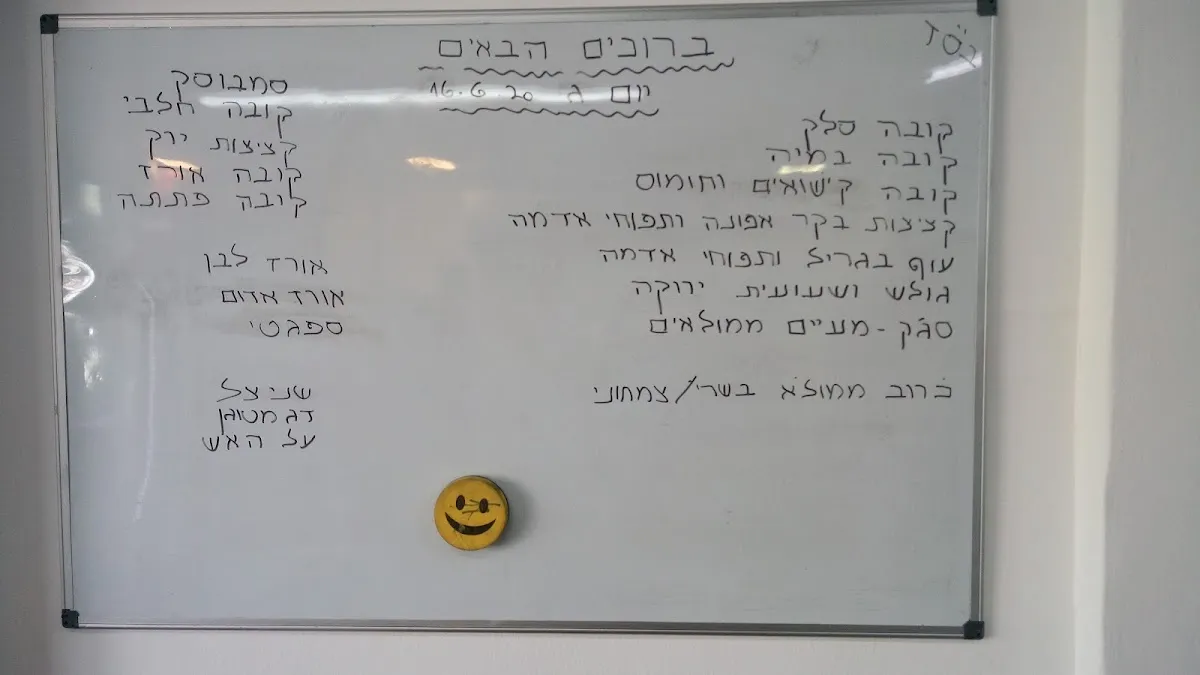 בס"ד
ברוכים הבאים
יום ג 16.6.20
קובה סלק
קובה במיה
קובה קישואים וחומוס
קציצות בקר אפונה ותפוחי אדמה
עוף בגריל ותפוחי אדמה
גולש ושעועית ירוקה
סג'ק - מעיים ממולאים
כרוב ממולא בשרי/צמחוני
סמבוסק
קובה חלבי
קציצות ירק
קובה אורז
קובה פתתה
אורז לבן
אורז אדום
ספגטי
שניצל
דג מטוגן
על האש